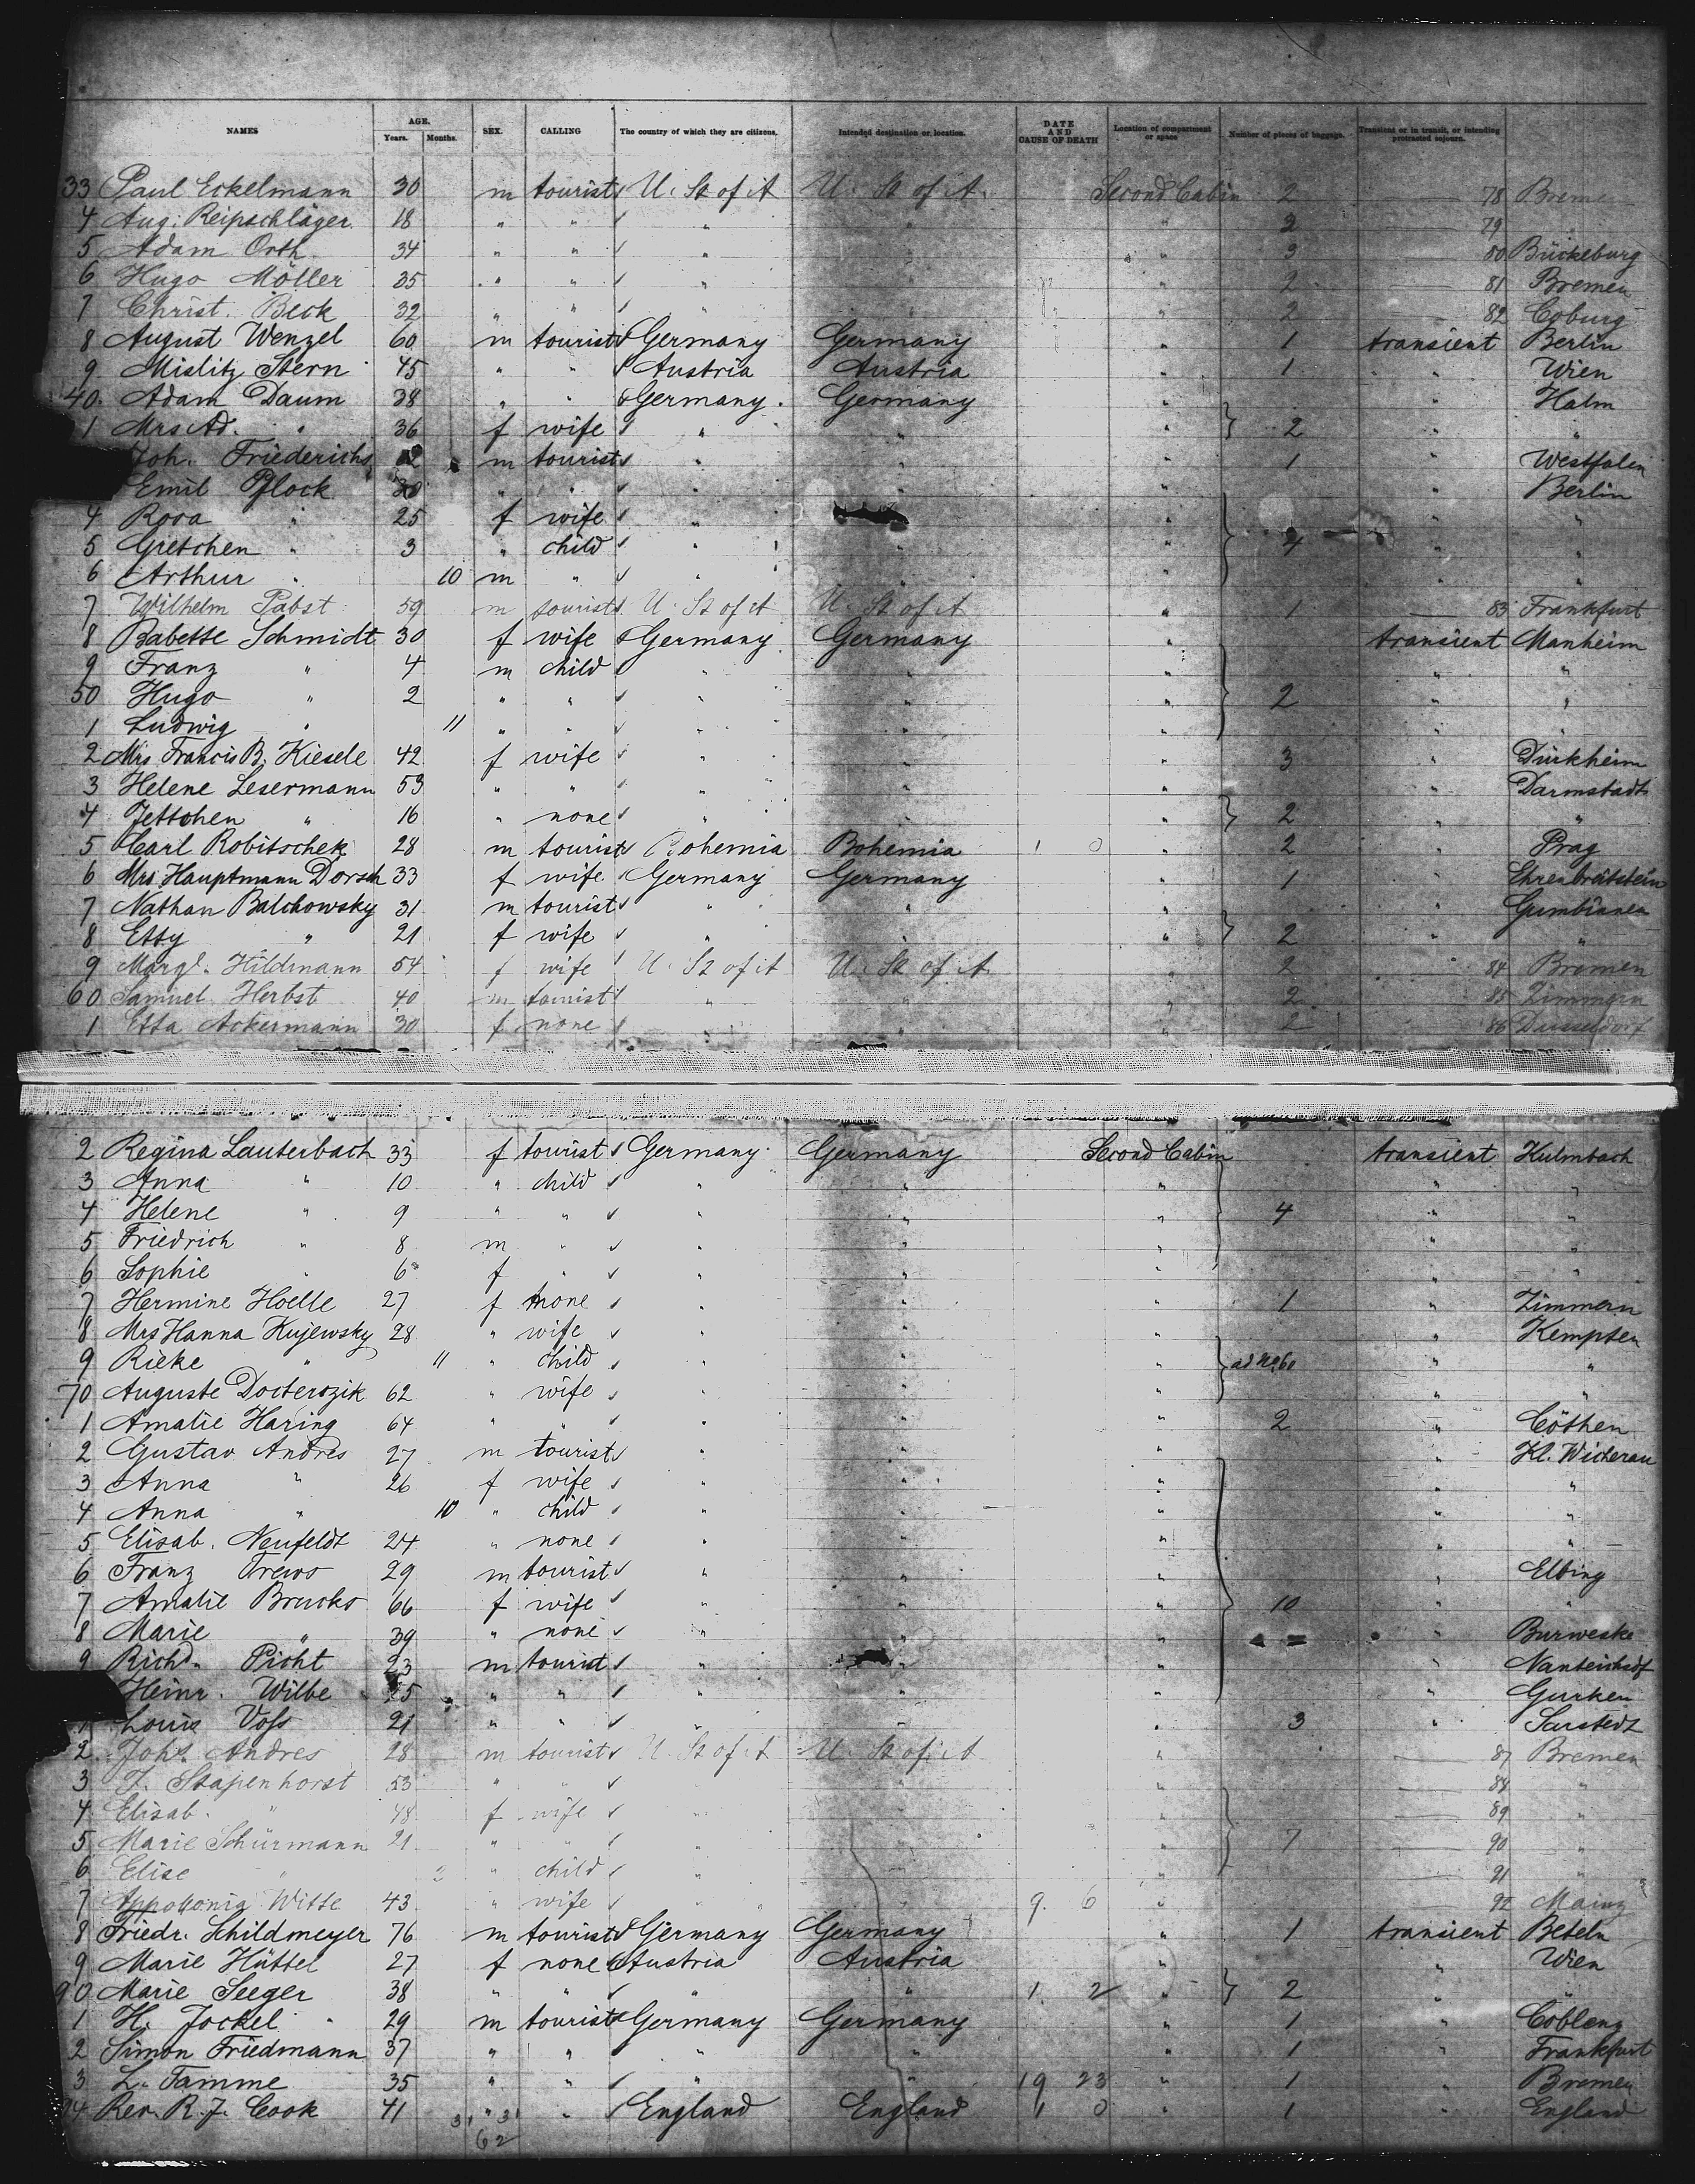 NAMES AGE. Years. Months. SEX. CALLING The country of which they are citizens. Intended destination or location. DATE AND CAUSE OF DEATH Location of compartment or space Number of pieces of baggage. Transient or in transit, or intending protracted sojourn.
33 Paul Eckelmann 30 m tourist U. St of A U. St of A. Second Cabin 2 78 Bremen
4 Aug. Reipschläger 18 " " " " " 2 79
5 Adam Orth. 34 " " " " " 3 80 Bückeburg
6 Hugo Möller 35 " " " " " 2 81 Bremen
7 Christ. Beck 32 " " " " " 2 82 Coburg
8 August Wenzel 60 m tourist Germany Germany " 1 transient Berlin
9 Mislitz Stern 45 " " Austria Austria " 1 " Wien
40. Adam Daum 38 " " Germany. Germany " " Halm
1 Mrs Ad. " 36 f wife " " " 2 " "
Joh. Friederichs m tourist " " " 1 " Westfalen
Emil Pflock 30 " " " " " " Berlin
4 Rosa " 25 f wife " " " " "
5 Gretchen " 3 " child " " " 4 " "
6 Arthur " 10 m " " " " " "
7 Wilhelm Pabst 59 m tourist U. St of A U. St of A " 1 83 Frankfurt
8 Babette Schmidt 30 f wife Germany Germany " transient Manheim
9 Franz " 4 m child " " " " "
50 Hugo " 2 " " " " " 2 " "
1 Ludwig " 11 " " " " " " "
2 Mrs Francis B. Kiesele 42 f wife " " " 3 " Dürkheim
3 Helene Lesermann 53 " " " " " " Darmstadt
4 Jettchen " 16 " none " " " 2 " "
5 Carl Robitschek 28 m tourist Bohemia Bohemia 1 0 " 2 " Prag
6 Mrs Hauptmann Dorsch 33 f wife Germany Germany " 1 " Ehrenbreitstein
7 Nathan Balchowsky 31 m tourist " " " " Gumbinnen
8 Etty " 21 f wife " " " 2 " "
9 Margt. Hildmann 54 f wife U. St of A U. St of A. " 2 84 Bremen
60 Samuel Herbst 40 m tourist " " " 2 85 Zimmern
1 Etta Ackermann 30 f none " " " 2 86 Dusseldorf
2 Regina Lauterbach 33 f tourist Germany Germany Second Cabin transient Kulmbach
3 Anna " 10 " child " " " " "
4 Helene " 9 " " " " " 4 " "
5 Friedrich " 8 m " " " " " "
6 Sophie " 6 f " " " " " "
7 Hermine Hoelle 27 f none " " " 1 " Zimmern
8 Mrs Hanna Kujewsky 28 " wife " " " " Kempten
9 Rieke " 11 " child " " " ad No 60 " "
70 Auguste Docterozik 62 " wife " " " " "
1 Amalie Haring 64 " " " " " 2 " Cöthen
2 Gustav Andres 27 m tourist " " " " Kl. Wickerau
3 Anna " 26 f wife " " " " "
4 Anna " 10 " child " " " " "
5 Elisab. Neufeldt 24 " none " " " " "
6 Franz 29 m tourist " " " " Elbing
7 Amalie 66 f wife " " " 10 " "
8 Marie " 39 " none " " " " Burweske
9 Richd. Picht 23 m tourist " " "
Heinr. Wilbe 25 " " " " " " Gurken
1 Louis Voss 21 " " " " " 3 " Sarstedt
2 Joht. Andres 28 m tourist U. St of A U. St of A " 87 Bremen
3 J. Stapenhorst 53 " " " " " 88 "
4 Elisab. " 48 f wife " " " 89 "
5 Marie Schürmann 21 " " " " " 7 90 "
6 Elise " " child " " " 91 "
7 Appollonia Witte 43 " wife " " 9. 6 " 92 Mainz
8 Friedr. Schildmeyer 76 m tourist Germany Germany " 1 transient Beteln
9 Marie Hüttel 27 f none Austria Austria " " Wien
90 Marie Seeger 38 " " " " 1. 2 " 2 " "
1 H. Jockel 29 m tourist Germany Germany " 1 " Coblenz
2 Simon Friedmann 37 " " " " " 1 " Frankfurt
3 L. Tamme 35 " " " " 19 23 " 1 " Bremen
94 Rev. R. J. Cook 41 " " England England 1 0 " 1 " England
31 31
62